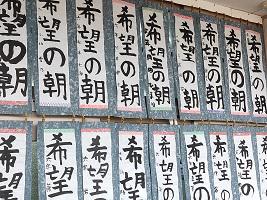 希望の朝
希望の朝
希望の朝
希望の朝
希望の朝
希望の朝
希望の朝
希望の朝
希望の朝
希望
希望
希望
希望
希望の
希望の
希望の
希望の
希望の